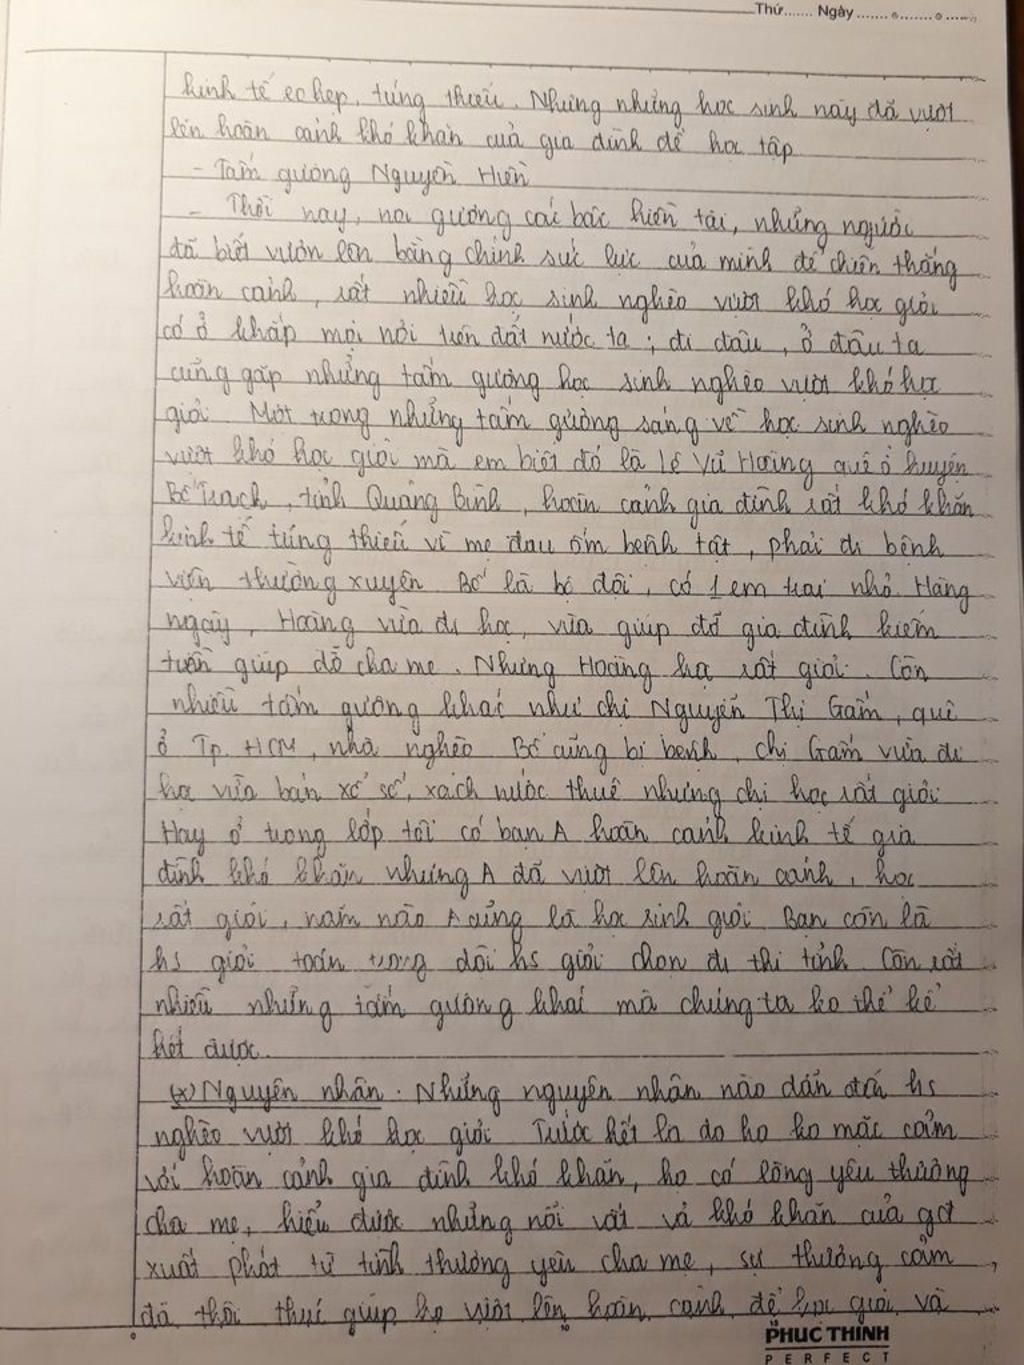 Thứ....... Ngày ........ ........ ......
kinh tế eo hẹp, túng thiếu. Nhưng những học sinh này đã vượt
lên hoàn cảnh khó khăn của gia đình để học tập
- Tấm gương Nguyễn Hiền
- Thời nay, noi gương các bậc hiền tài, những người
đã biết vươn lên bằng chính sức lực của mình để chiến thắng
hoàn cảnh, rất nhiều học sinh nghèo vượt khó học giỏi
có ở khắp mọi nơi trên đất nước ta ; đi đâu, ở đâu ta
cũng gặp những tấm gương học sinh nghèo vượt khó học
giỏi. Một trong những tấm gương sáng về học sinh nghèo
vượt khó học giỏi mà em biết đó là Lê Vũ Hoàng quê ở huyện
Bố Trạch, tỉnh Quảng Bình, hoàn cảnh gia đình rất khó khăn
kinh tế túng thiếu vì mẹ đau ốm bệnh tật, phải đi bệnh
viện thường xuyên. Bố là bộ đội, có 1 em trai nhỏ. Hàng
ngày, Hoàng vừa đi học, vừa giúp đỡ gia đình kiếm
tiền giúp đỡ cha mẹ. Nhưng Hoàng học rất giỏi. Còn
nhiều tấm gương khác như chị Nguyễn Thị Gấm, quê
ở Tp. HCM, nhà nghèo. Bố cũng bị bệnh, chị Gấm vừa đi
học vừa bán xổ số, xách nước thuê nhưng chị học rất giỏi
Hay ở trong lớp tôi có bạn A hoàn cảnh kinh tế gia
đình khó khăn nhưng A đã vượt lên hoàn cảnh, học
rất giỏi, năm nào A cũng là học sinh giỏi. Bạn còn là
hs giỏi toán trong đội hs giỏi chọn đi thi tỉnh. Còn rất
nhiều những tấm gương khác mà chúng ta ko thể kể
hết được.
(x) Nguyên nhân. Những nguyên nhân nào dẫn đến hs
nghèo vượt khó học giỏi. Trước hết là do họ ko mặc cảm
với hoàn cảnh gia đình khó khăn, họ có lòng yêu thương
cha mẹ, hiểu được những nỗi vất vả khó khăn của gđ
xuất phát từ tình thương yêu cha mẹ, sự thương cảm,
đã thôi thúc giúp họ vượt lên hoàn cảnh để học giỏi và
PHUC THINH
PERFECT